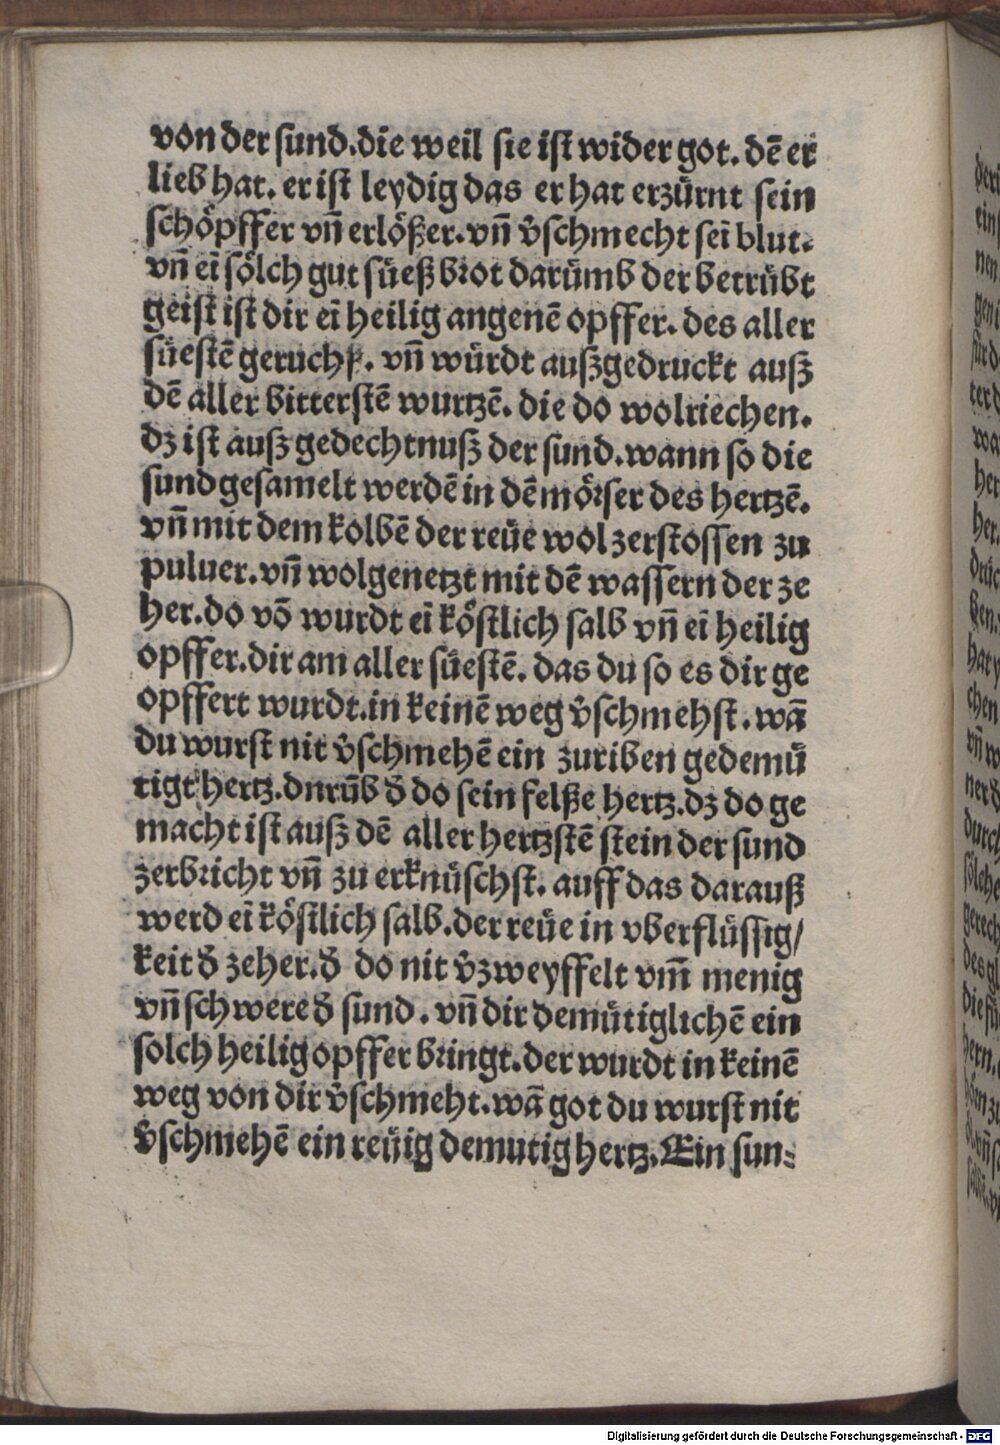 von der sund.die weil sie ist wider got. dē er
lieb hat. er ist leydig das er hat erzürnt sein
schöpffer vn̄ erlößer.vn̄ v̾schmecht seī blut.
vn̄ eī sölch gut süeß brot darümb der betrübt
geist ist dir eī heilig angenē opffer. des aller
süestē geruchs. vn̄ würdt außgedruckt auß
dē aller bitterstē wurtzē. die do wolriechen.
dz ist auß gedechtnuß der sund.wann so die
sund gesamelt werdē in dē mörser des hertzē.
vn̄ mit dem kolbē der reüe wol zerstossen zu
puluer.vn̄ wolgenetzt mit dē wassern der ze
her.do vō wurdt eī köstlich salb vn̄ eī heilig
opffer.dir am aller süestē. das du so es dir ge
opffert wurdt.in keinē weg v̾schmehst. wā
du wurst nit v̾schmehē ein zuriben gedemü
tigt hertz.dnrūb d̾ do sein felße hertz.dz do ge
macht ist auß dē aller hertzstē stein der sund
zerbricht vn̄ zu erknüschst. auff das darauß
werd eī köstlich salb.der reüe in vberflüssig/
keit d̾ zeher.d̾ do nit v̾zweyffelt vm̄ menig
vn̄ schwere d̾ sund. vn̄ dir demütiglichē ein
solch heilig opffer bringt.der wurdt in keinē
weg von dir v̾schmeht.wā got du wurst nit
v̾schmehē ein reüig demutig hertz.Ein sun⸗
Digitalisierung gefördert durch die Deutsche Forschungsgemeinschaft - DFG